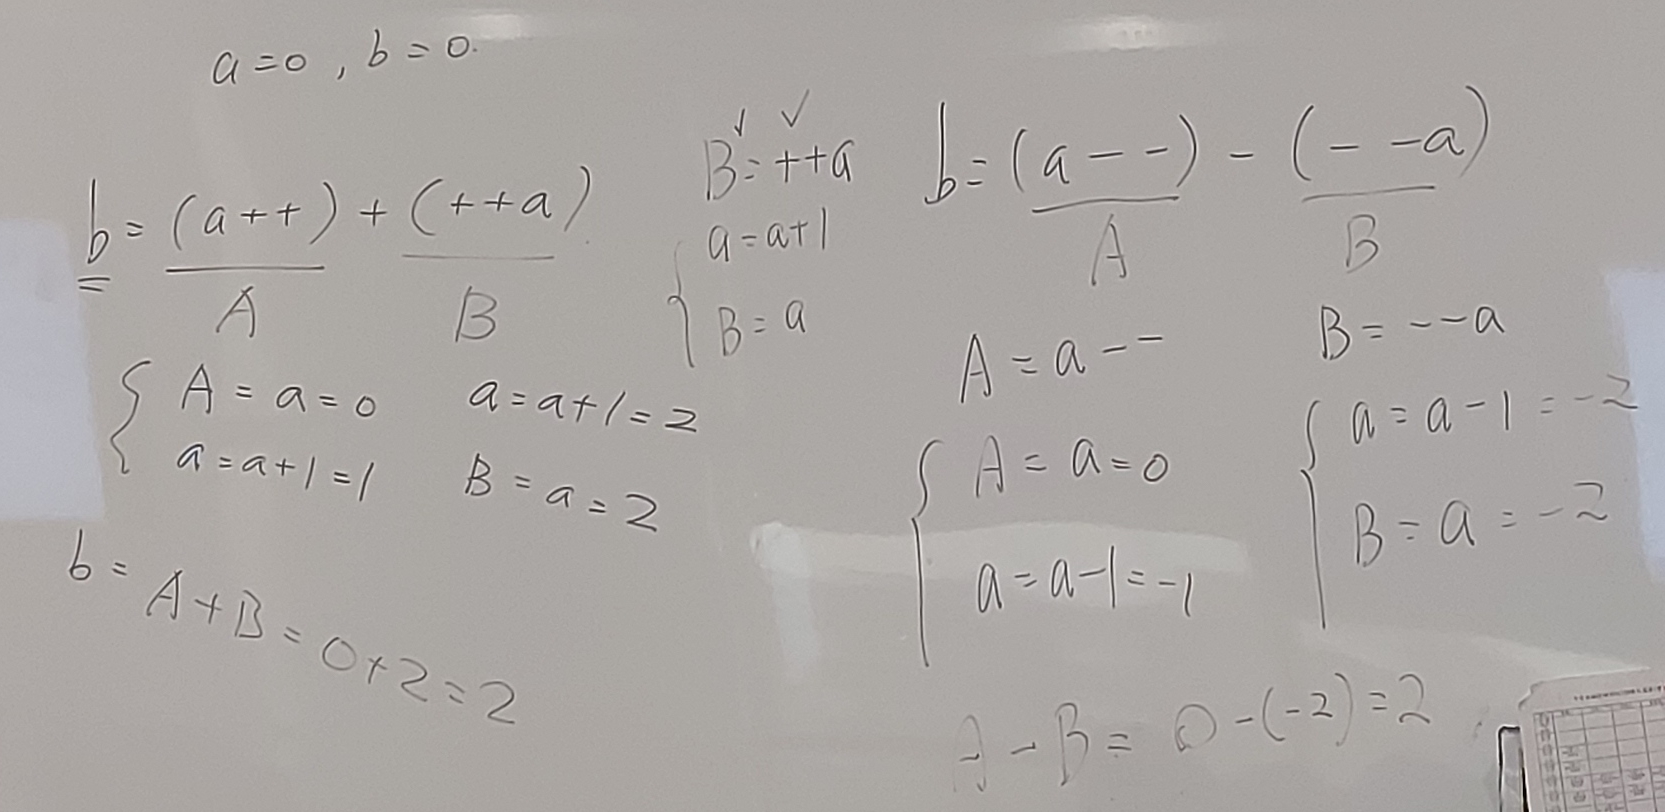 a=0, b=0.
b=(a++)+(++a)
A B
A=a=0 a=a+1=2
a=a+1=1 B=a=2
b=A+B=0+2=2
B=++a
a=a+1
B=a
b=(a--)-(--a)
A B
A=a-- B=--a
A=a=0 a=a-1=-2
a=a-1=-1 B=a=-2
A-B=0-(-2)=2